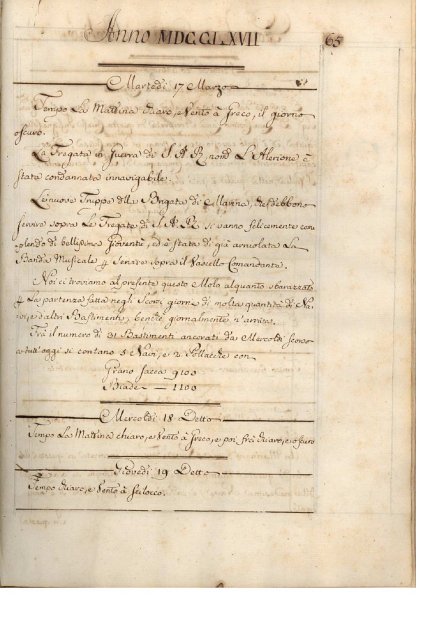 Anno MDCCLXVII
65
Martedì 17 Marzo
Tempo La Mattina chiaro, e Vento à Greco, il giorno
oscuro.
La Fregata in Guerra di S. A. R. nom.ª L'Alerione è
stata condannata innavigabile.
Le nuove Truppe della Brigata di Marina, che debbono
servire sopra le Fregate di S. A. R. si vanno felicemente com
plendo di bellissima Gioventù, ed è stata di già arruolata La
Banda Musicale p Servire sopra il Vascello Comandante.
Noi ci troviamo al presente questo Molo alquanto sbarazzato
p La partenza fatta negli scorsi giorni di molta quantità di Na
vi, e d'altri Bastimenti, benché giornalmente n'arriva.
Trà il numero di 31 Bastimenti ancorati da Mercoldì scorso
a tutt'oggi si contano 5 Navi, e 2 Pollacche con
Grano Sacca 9100
Biade 1100
Mercoldì 18 Detto
Tempo La Mattina chiaro, e Vento à Greco, e poi frà chiaro, e oscuro
Giovedì 19 Detto
Tempo chiaro, e Vento à Scilocco.